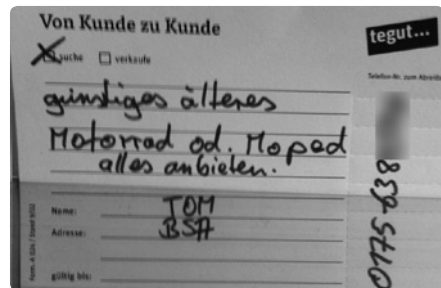 Von Kunde zu Kunde
tegut...
suche verkaufe
Telefon-Nr. zum
günstiges älteres
Motorrad od. Moped
alles anbieten.
Name: TOM
Adresse: BSA
gültig bis:
Form. A 024 / Stand 9/02
0175 859